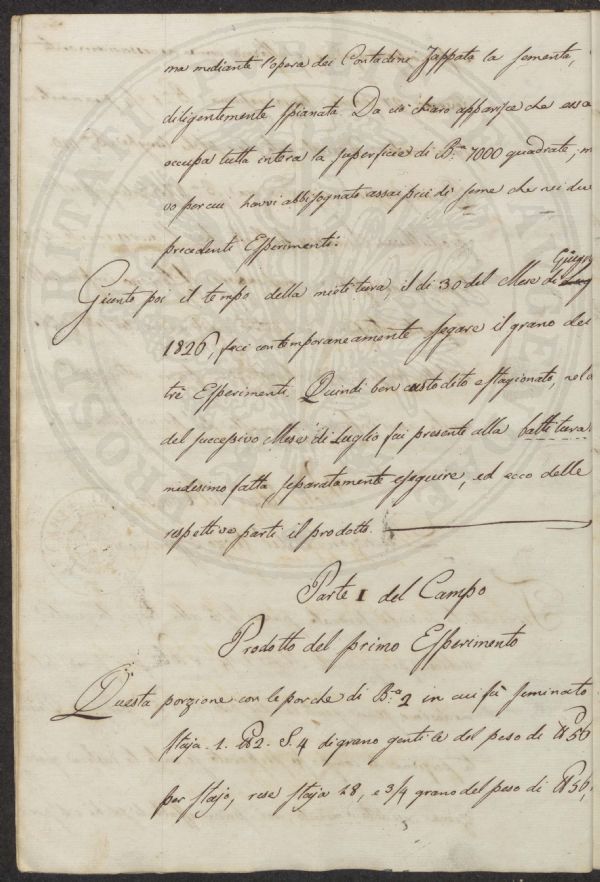 ma mediante l'opera dei Contadini zappata la sementa,
diligentemente spianata. Da ciò chiaro apparisce che essa
occupa tutta intera la superficie di B.a 7000 quadrate, m
vo per cui havvi abbisognato assai più di seme che nei due
precedenti Esperimenti.
Giunto poi il tempo della mietitura, il dì 30 del Mese di Giugno
1826, feci contemporaneamente segare il grano dei
trè Esperimenti. Quindi ben custodito e stagionato, nel d
del successivo Mese di Luglio fui presente alla battitura
medesimo fatta separatamente eseguire, ed ecco delle
respettive parti il prodotto.
Parte I del Campo
Prodotto del primo Esperimento
Questa porzione con le porche di B.a 2 in cui fù seminato
staja 1. 2. S. 4 di grano gentile del peso di 56
per stajo, rese staja 28, e 3/4 grano del peso di 56,